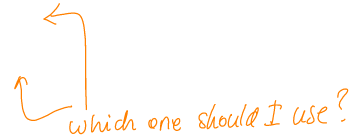 which one should I use?